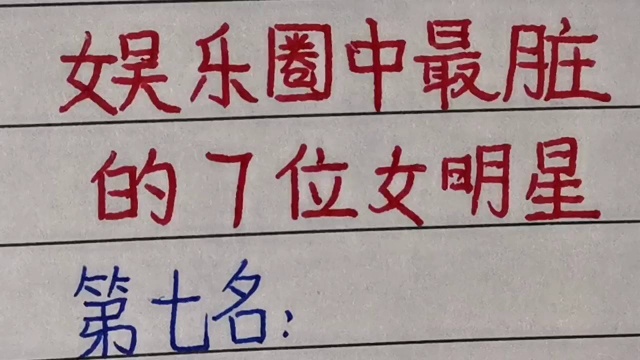 娱乐圈中最脏
的7位女明星
第七名: